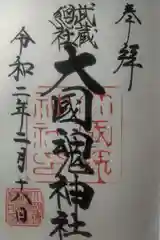 奉拝
武蔵
總社
大國魂神社
令和二年二月十六日